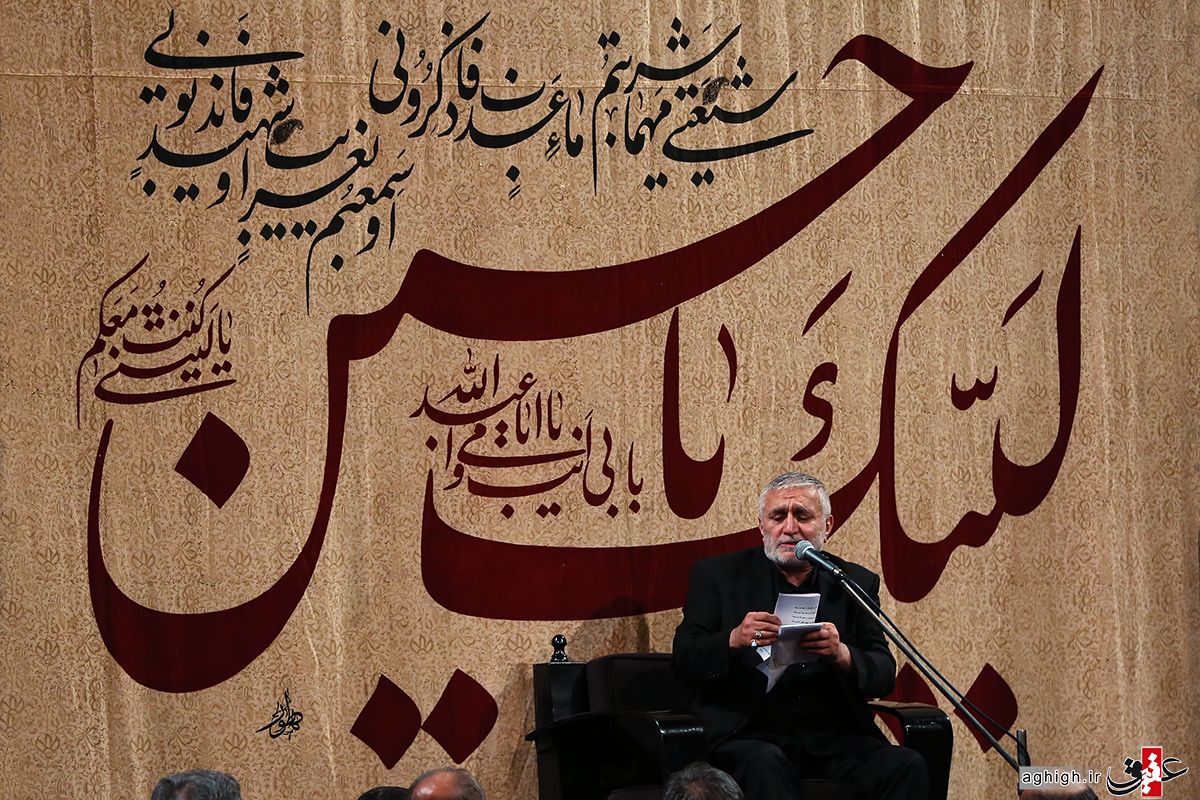 شیعتی مهما شربتم ماء عذب فاذکرونی
او سمعتم بغریب او شهید فاندبونی
لبیک یا حسین
یا لیتنی کنت معکم
بابی انت و امی یا ابا عبدالله
aghigh.ir
عقیق